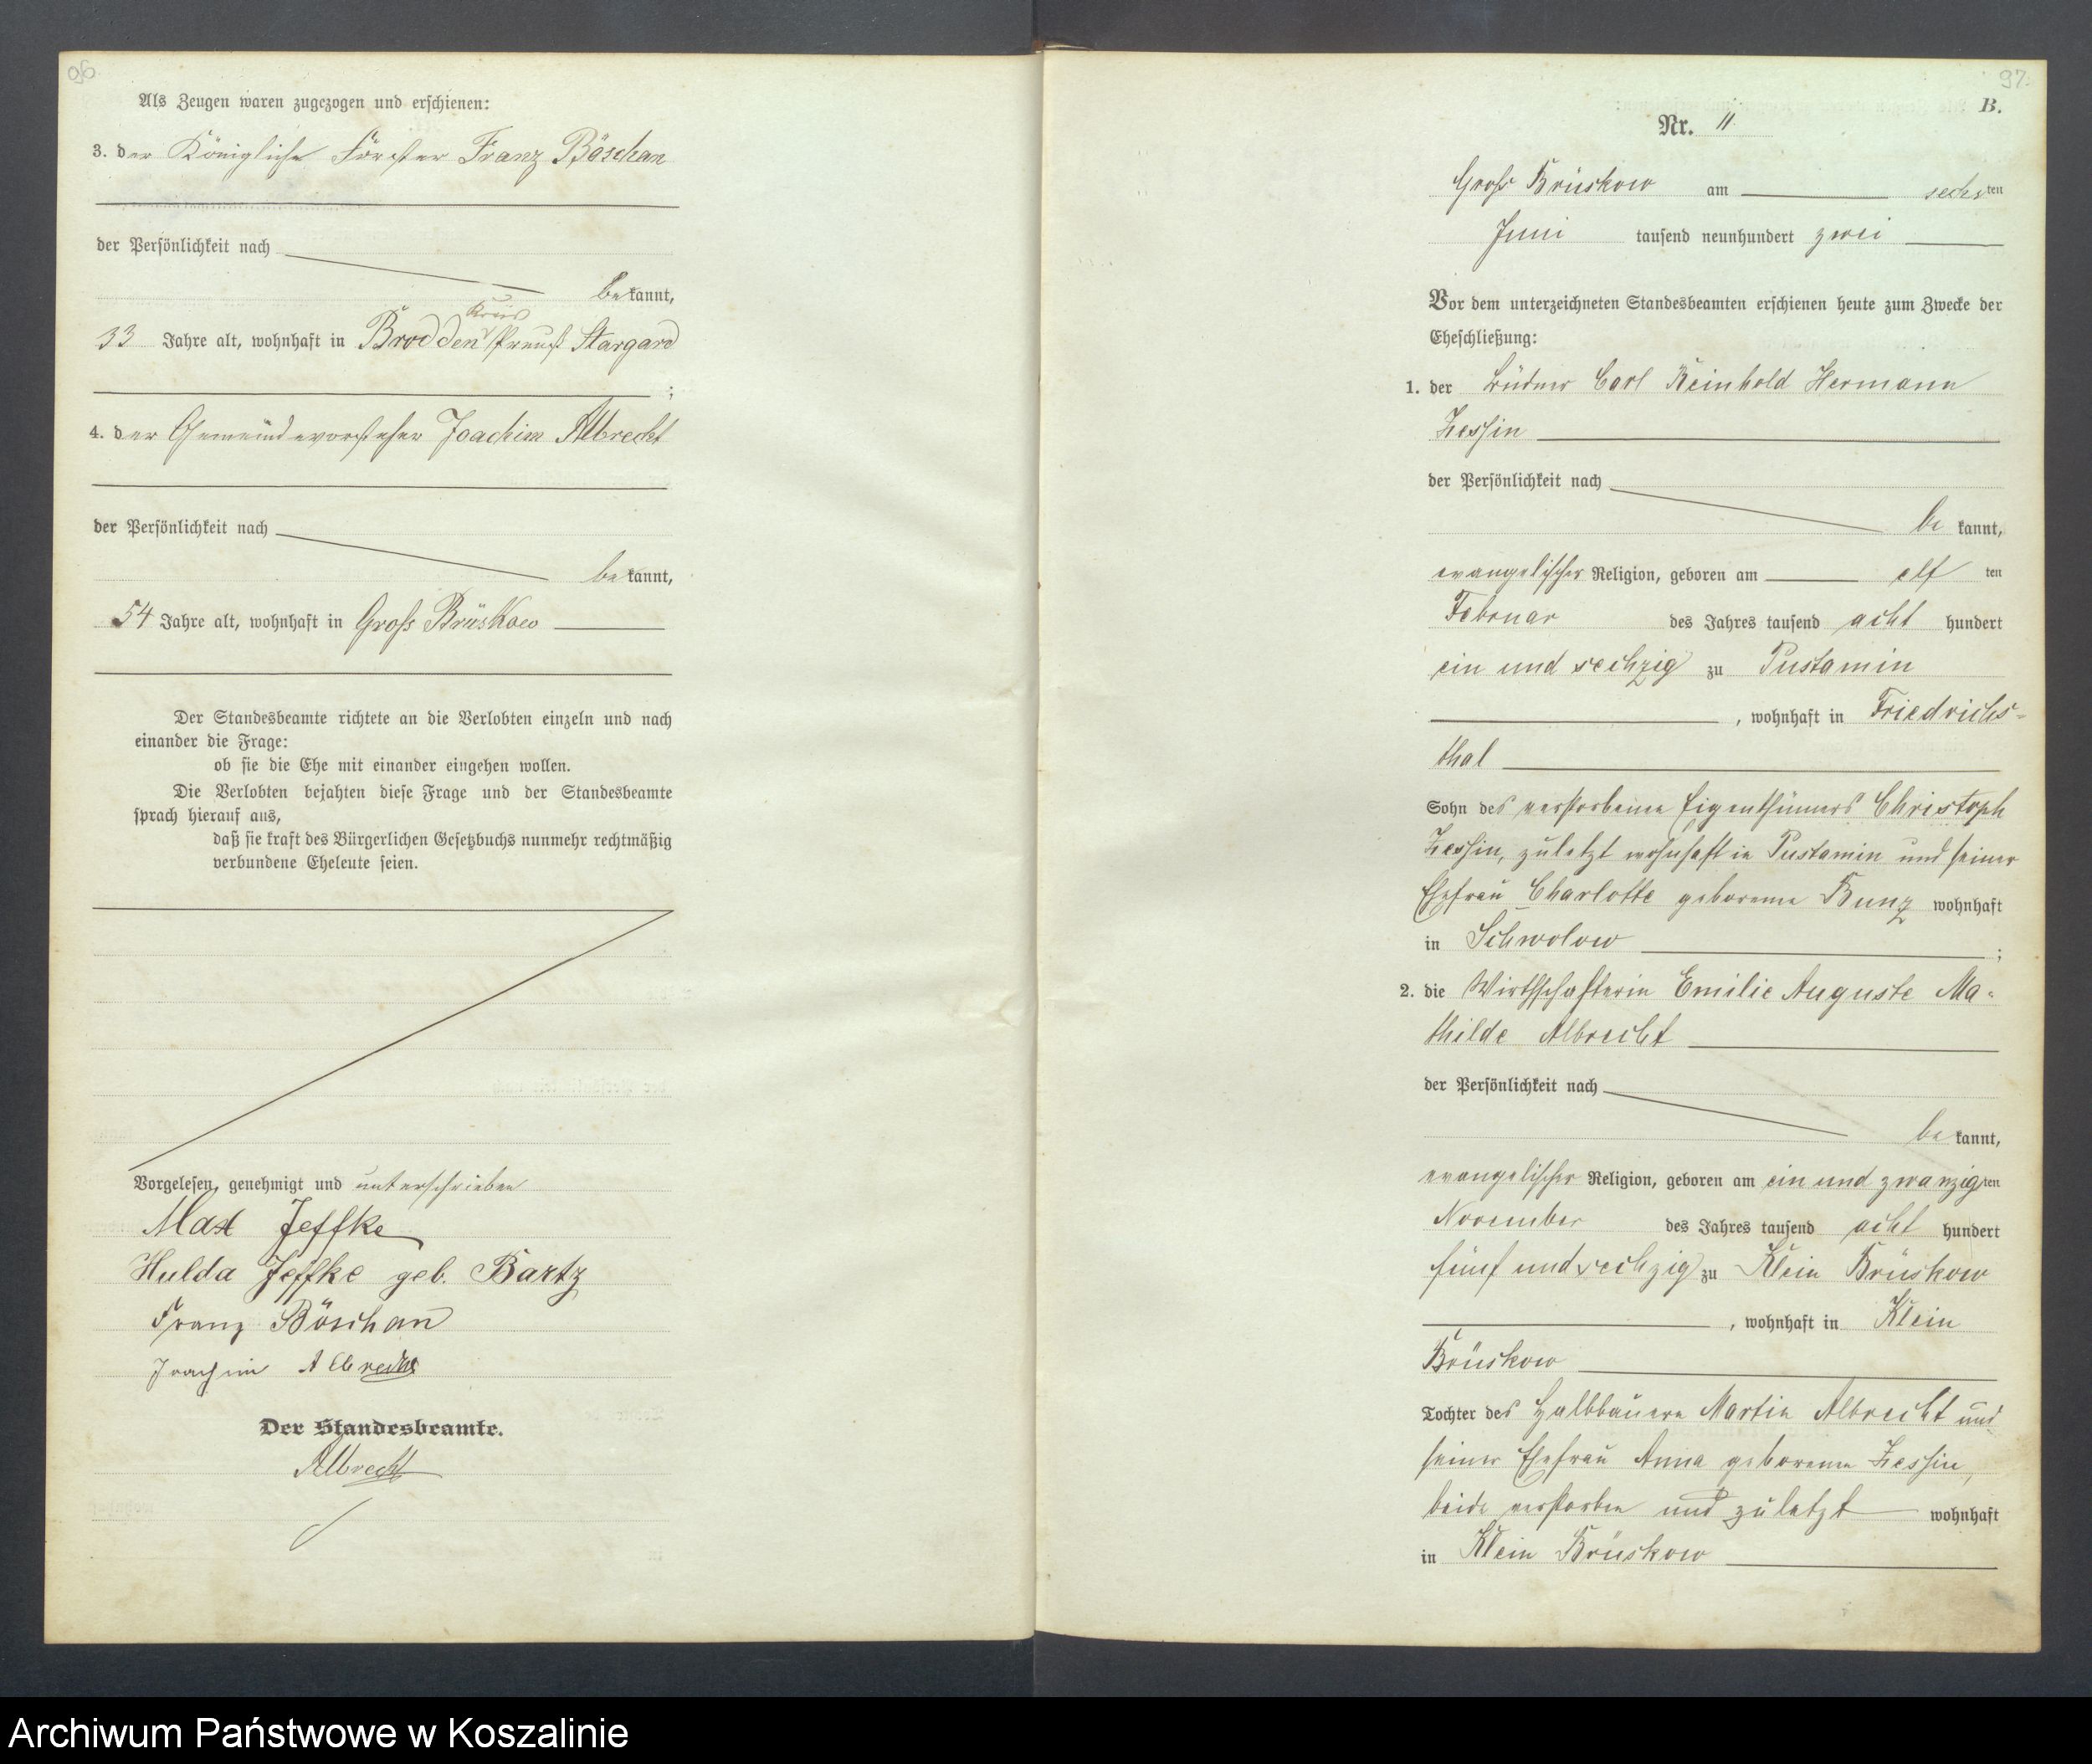 96.
Als Zeugen waren zugezogen und erschienen:
3. der Königliche Förster Franz Böschan
der Persönlichkeit nach
bekannt,
Kreis
33 Jahre alt, wohnhaft in Brodden Preuß Stargard
;
4. der Gemeindevorsteher Joachim Albrecht
der Persönlichkeit nach
bekannt,
54 Jahre alt, wohnhaft in Groß Brüskow
Der Standesbeamte richtete an die Verlobten einzeln und nach
einander die Frage:
ob sie die Ehe mit einander eingehen wollen.
Die Verlobten bejahten diese Frage und der Standesbeamte
sprach hierauf aus,
daß sie kraft des Bürgerlichen Gesetzbuchs nunmehr rechtmäßig
verbundene Eheleute seien.
Vorgelesen, genehmigt und unterschrieben
Max Jeffke
Hulda Jeffke geb. Bartz
Franz Böschan
Joachim Albrecht
Der Standesbeamte.
Albrecht
97.
B.
Nr. 11
Groß Brüskow am sechsten
Juni tausend neunhundert zwei
Vor dem unterzeichneten Standesbeamten erschienen heute zum Zwecke der
Eheschließung:
1. der Büdner Carl Reinhold Hermann
Zessin
der Persönlichkeit nach
bekannt,
evangelischer Religion, geboren am elften
Februar des Jahres tausend acht hundert
ein und sechzig zu Pustamin
, wohnhaft in Friedrichs-
thal
Sohn des verstorbenen Eigenthümers Christoph
Zessin, zuletzt wohnhaft in Pustamin und seiner
Ehefrau Charlotte geborene Bunz wohnhaft
in Schwolow ;
2. die Wirthschafterin Emilie Auguste Ma-
thilde Albrecht
der Persönlichkeit nach
bekannt,
evangelischer Religion, geboren am ein und zwanzigten
November des Jahres tausend acht hundert
fünf und sechzig zu Klein Brüskow
, wohnhaft in Klein
Brüskow
Tochter des Halbbauern Martin Albrecht und
seiner Ehefrau Anna geborene Zessin,
beide verstorben und zuletzt wohnhaft
in Klein Brüskow
Archiwum Państwowe w Koszalinie